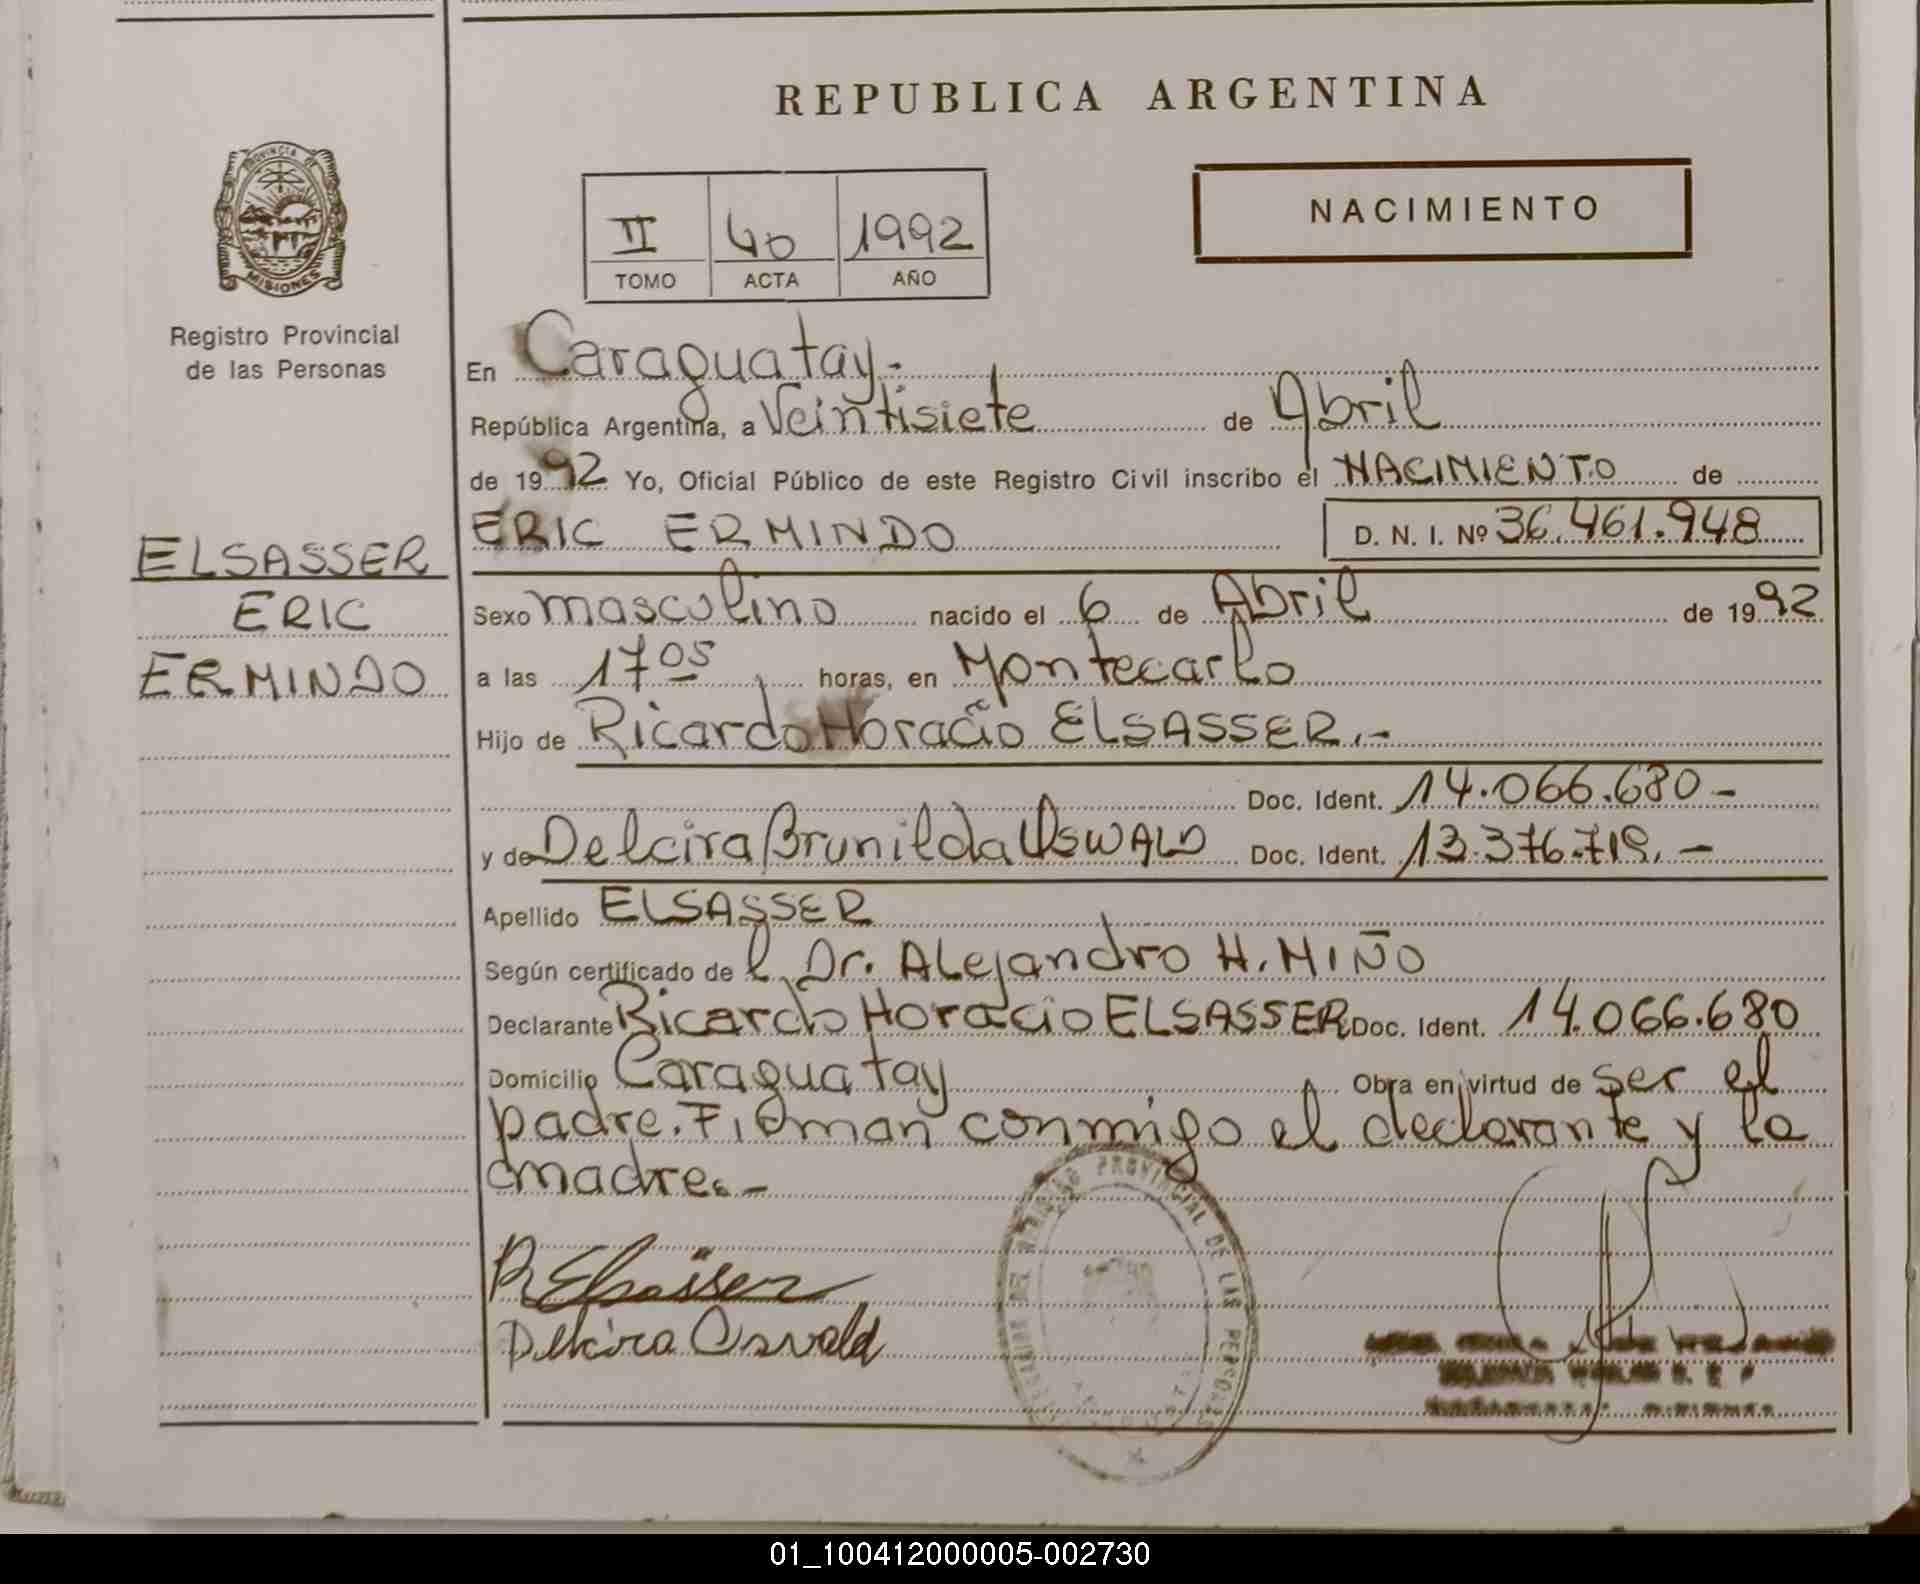 REPUBLICA ARGENTINA
PROVINCIA DE
MISIONES
Registro Provincial
de las Personas
II 40 1992
TOMO ACTA AÑO
NACIMIENTO
En Caraguatay.-
República Argentina, a Veintisiete de Abril
de 1992 Yo, Oficial Público de este Registro Civil inscribo el NACIMIENTO de
ERIC ERMINDO D. N. I. Nº 36.461.948
ELSASSER
ERIC
ERMINDO
Sexo masculino nacido el 6 de Abril de 1992
a las 17 05 horas, en Montecarlo
Hijo de Ricardo Horacio ELSASSER.-
Doc. Ident. 14.066.680-
y de Delcira Brunilda OSWALD Doc. Ident. 13.376.719.-
Apellido ELSASSER
Según certificado de l Dr. Alejandro H. MIÑO
Declarante Ricardo Horacio ELSASSER Doc. Ident. 14.066.680
Domicilio Caraguatay Obra en virtud de ser el
padre. Firman conmigo el declarante y la
madre.-
R Elsässer
Delcira Osvald
REGISTRO PROVINCIAL DE LAS PERSONAS
01_100412000005-002730